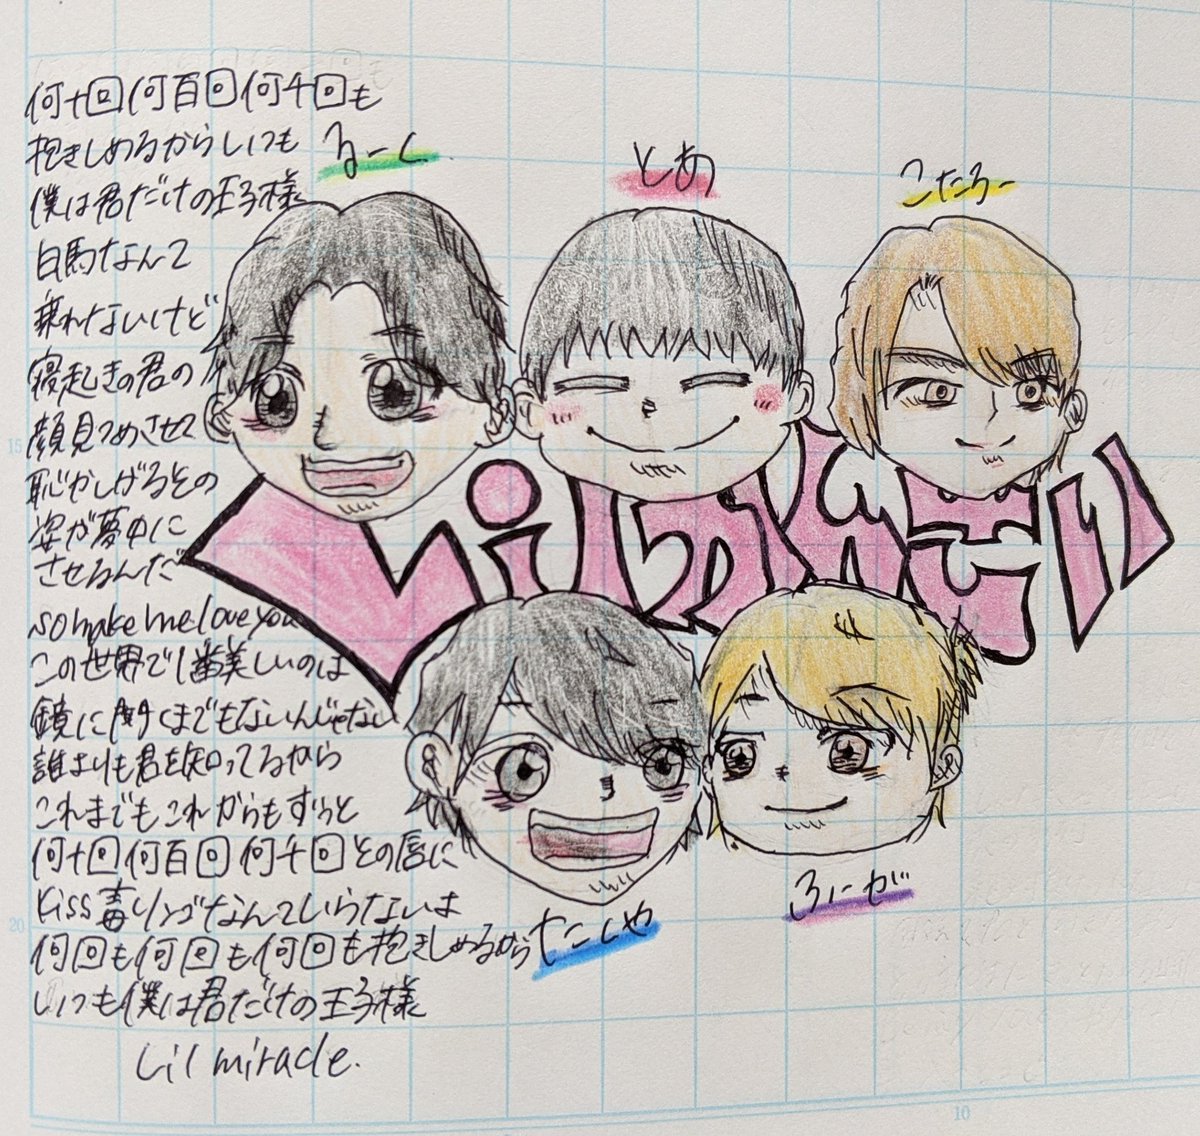 何十回何百回何千回も
抱きしめるからいつも
僕は君だけの王子様
白馬なんて
乗れないけど
寝起きの君の
顔見つめさせて
恥かしげるその
姿が夢中に
させるんだ
so make me love you
この世界で1番美しいのは
鏡に聞くまでもないんじゃない
誰よりも君を知ってるから
これまでもこれからもずっと
何十回何百回何千回その唇に
kiss毒リンゴなんていらないは
何回も何回も何回も抱きしめるから
いつも僕は君だけの王子様
Lil miracle.
るーく
とあ
こたろー
Lilかんさい
たこしや
ふーが